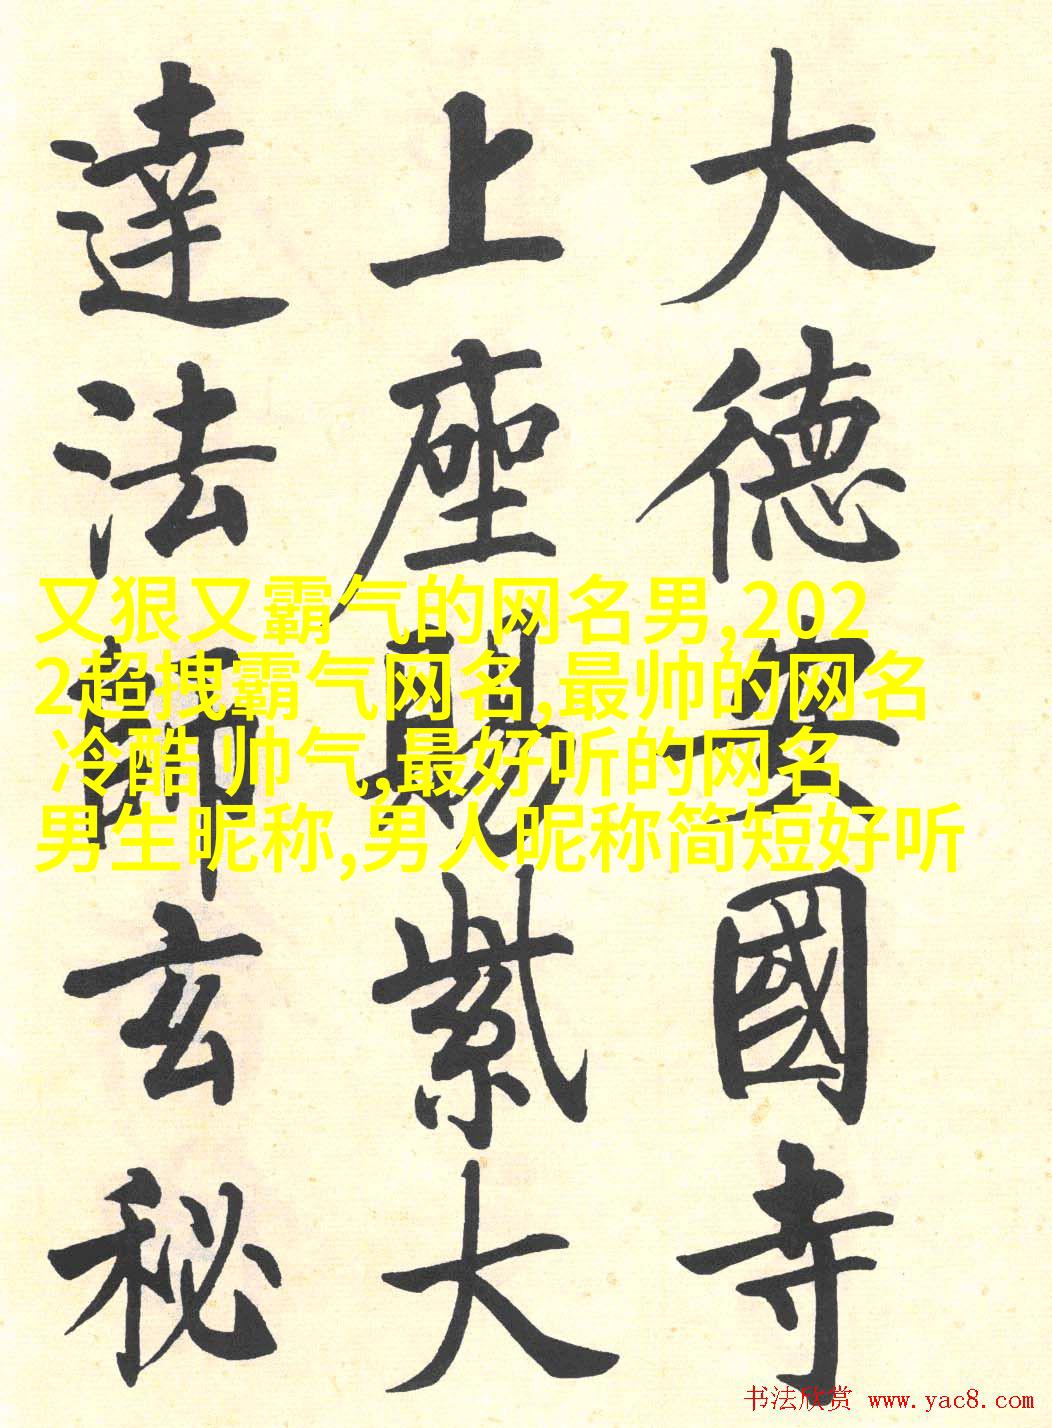 大德安國寺
上座賜紫大
達法師玄秘
又狠又霸气的网名男,202
2超拽霸气网名,最帅的网名
冷酷 帅气,最好听的网名
男生昵称,男人昵称简短好听
书法欣赏 www.yac8.com